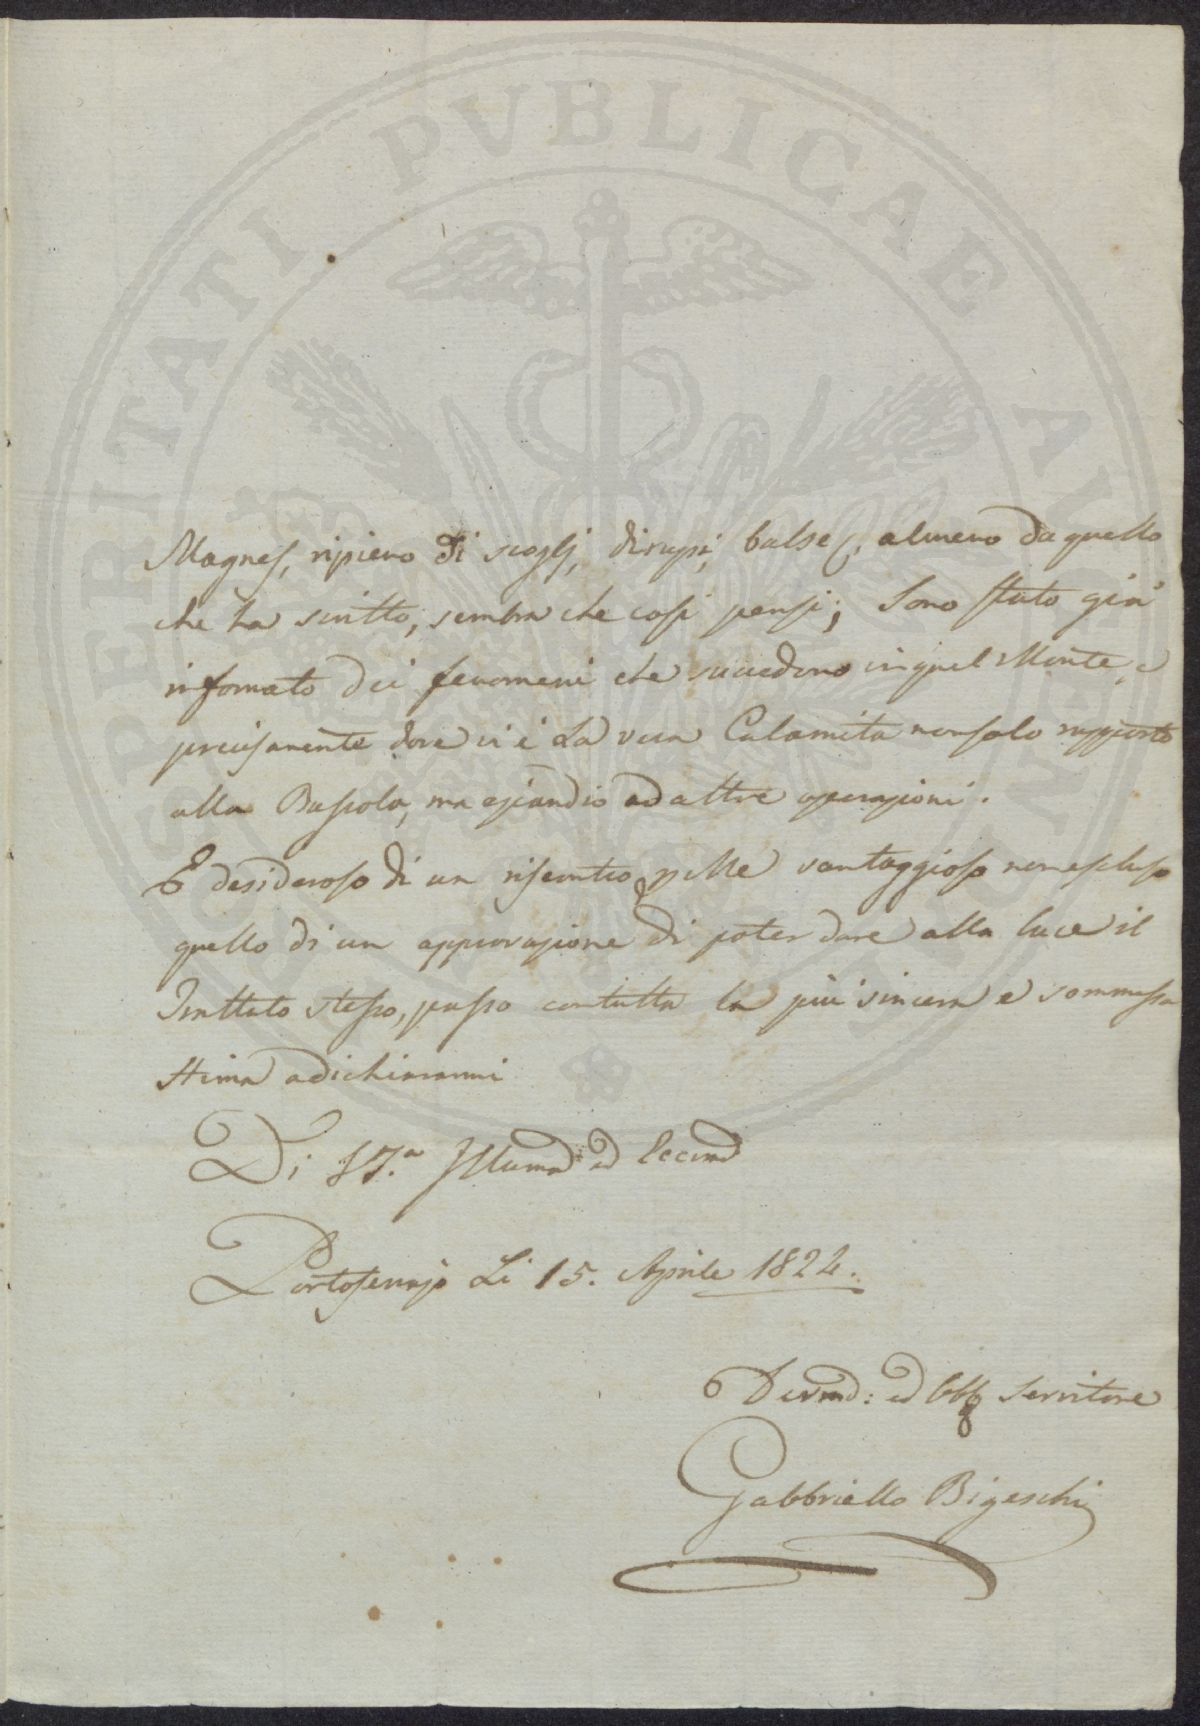 PROSPERITATI PVBLICAE AVGENDAE
Magnes, ripieno di scoglj, dirupi, balse, almeno da quello
che ha scritto, sembra che cosi pensi; Sono stato già
informato dei fenomeni che succedono in quel Monte, e
precisamente dove vi è La vera Calamita non solo rapporto
alla Bussola, ma eziandio ad altre operazioni.
E desideroso di un riscontro p Me vantaggioso non escluso
quello di un approvazione di poter dare alla luce il
Trattato stesso, passo con tutta la più sincera e sommessa
stima a dichiararmi
Di S. Illuma ed Eccma
Li 15. Aprile 1824.
Devmo: ed Obb Servitore
Gabbriello Bigeschi